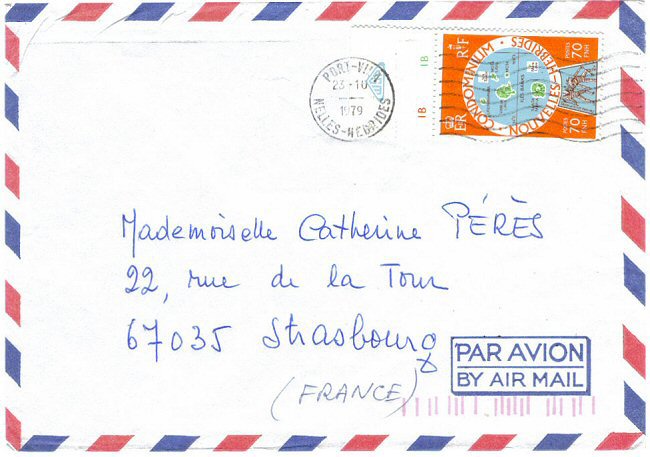 PORT-VILA
23-10
1979
NELLES-HEBRIDES
1B
1B
RF
ER
CONDOMINIUM
NOUVELLES-HEBRIDES
POSTES
70
FNH
POSTES
70
FNH
Mademoiselle Catherine PÉRÈS
22, rue de la Tour
67035 Strasbourg
(FRANCE)
PAR AVION
BY AIR MAIL